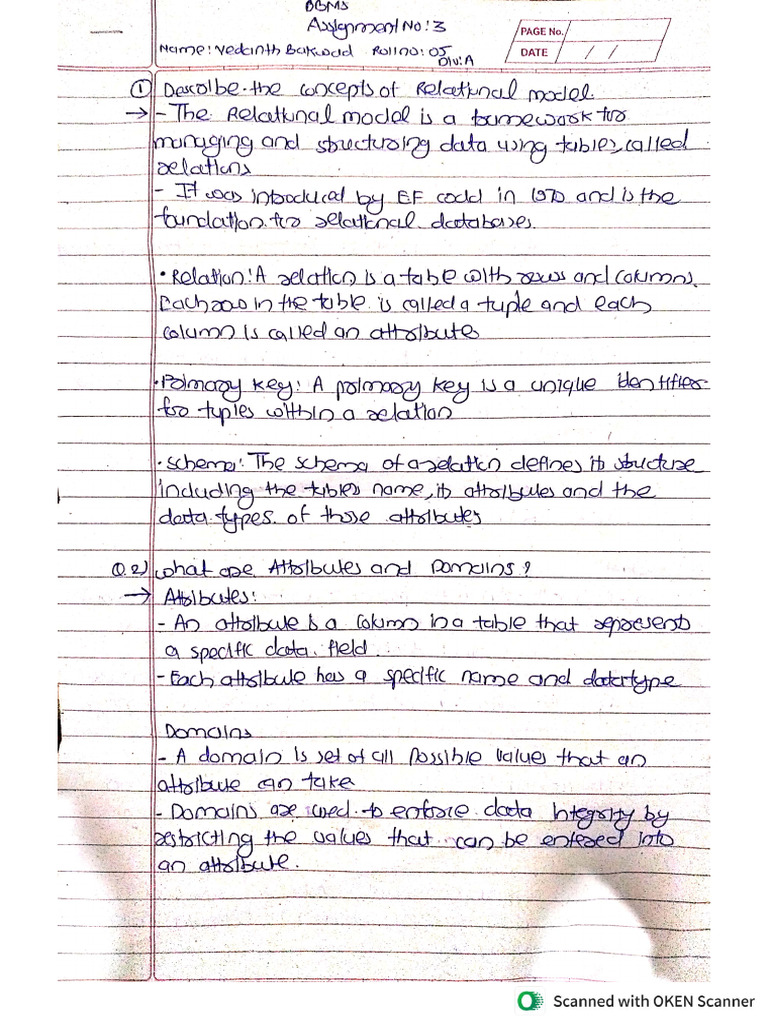 DBMS
Assignment No: 3
PAGE No.
Name: Vedanth Bakwad Roll no: 05
Div: A
DATE / /
① Describe the concepts of Relational model.
→ - The Relational model is a framework for
managing and structuring data using tables, called
relations
- It was introduced by EF codd in 1970 and is the
foundation for relational databases.
• Relation: A relation is a table with rows and columns.
Each row in the table is called a tuple and each
column is called an attribute
• Primary key: A primary key is a unique identifier
for tuples within a relation
• Schema: The schema of a relation defines its structure
including the tables name, its attributes and the
data types of those attributes
Q.2) what are Attributes and Domains?
→ Attributes:
- An attribute is a column in a table that represents
a specific data field
- Each attribute has a specific name and datatype
Domains
- A domain is set of all possible values that an
attribute can take
- Domains are used to enforce data integrity by
restricting the values that can be entered into
an attribute.
Scanned with OKEN Scanner